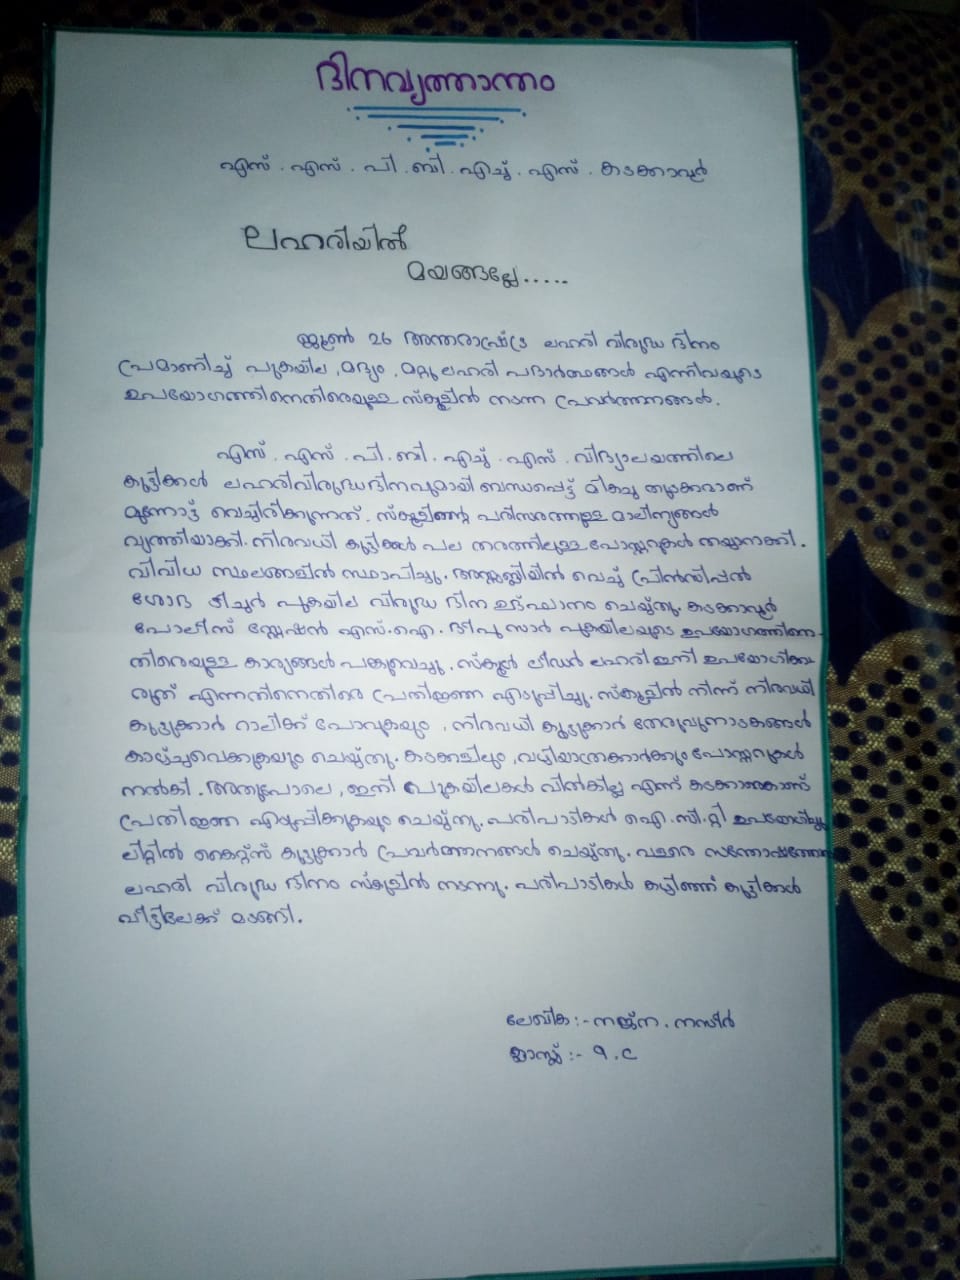 ദിനവൃത്താന്തം
എസ്. എസ്. പി. ബി. എച്ച്. എസ്. കടക്കാവൂർ
ലഹരിയിൽ
മയങ്ങല്ലേ.....
ജൂൺ 26 അന്തരാഷ്ട്ര ലഹരി വിരുദ്ധ ദിനം
പ്രമാണിച്ച് പുകയില, മദ്യം, മറ്റു ലഹരി പദാർത്ഥങ്ങൾ എന്നിവയുടെ
ഉപയോഗത്തിനെതിരെയുള്ള സ്കൂളിൽ നടന്ന പ്രവർത്തനങ്ങൾ.
എസ്. എസ്. പി. ബി. എച്ച്. എസ്. വിദ്യാലയത്തിലെ
കുട്ടികൾ ലഹരിവിരുദ്ധദിനവുമായി ബന്ധപ്പെട്ട് മികച്ച തുടക്കമാണ്
മുന്നോട്ട് വെച്ചിരിക്കുന്നത്. സ്കൂളിന്റെ പരിസരത്തുള്ള മാലിന്യങ്ങൾ
വൃത്തിയാക്കി. നിരവധി കുട്ടികൾ പല തരത്തിലുള്ള പോസ്റ്ററുകൾ തയ്യാറാക്കി.
വിവിധ സ്ഥലങ്ങളിൽ സ്ഥാപിച്ചു. അസംബ്ലിയിൽ വെച്ച് പ്രിൻസിപ്പൽ
ശോഭ ടീച്ചർ പുകയില വിരുദ്ധ ദിന ഉദ്ഘാടനം ചെയ്തു. കടക്കാവൂർ
പോലീസ് സ്റ്റേഷൻ എസ്.ഐ. ദീപു സാർ പുകയിലയുടെ ഉപയോഗത്തിനെ-
തിരെയുള്ള കാര്യങ്ങൾ പങ്കുവെച്ചു. സ്കൂൾ ലീഡർ ലഹരി ഇനി ഉപയോഗിക്ക
രുത് എന്നതിനെതിരെ പ്രതിജ്ഞ എടുപ്പിച്ചു. സ്കൂളിൽ നിന്ന് നിരവധി
കൂട്ടുക്കാർ റാലിക്ക് പോവുകയും, നിരവധി കൂട്ടുക്കാർ തേരുവുനാടകങ്ങൾ
കാഴ്ച്ചവെക്കുകയും ചെയ്തു. കടകളിലും, വഴിയാത്രക്കാർക്കും പോസ്റ്ററുകൾ
നൽകി. അതുപോലെ, ഇനി പുകയിലകൾ വിൽകില്ല എന്ന് കടക്കാരെകൊണ്ട്
പ്രതിജ്ഞ എടുപ്പിക്കുകയും ചെയ്തു. പരിപാടികൾ ഐ.സി.റ്റി ഉപയോഗിച്ചും
ലിറ്റിൽ കൈറ്റ്സ് കൂട്ടുക്കാർ പ്രവർത്തനങ്ങൾ ചെയ്തു. വളരെ സന്തോഷത്തോടെ
ലഹരി വിരുദ്ധ ദിനം സ്കൂളിൽ നടന്നു. പരിപാടികൾ കഴിഞ്ഞ് കുട്ടികൾ
വീട്ടിലേക്ക് മടങ്ങി.
ലേഖിക :- നജ്ന. നസീർ
ക്ലാസ്സ് :- 9. C